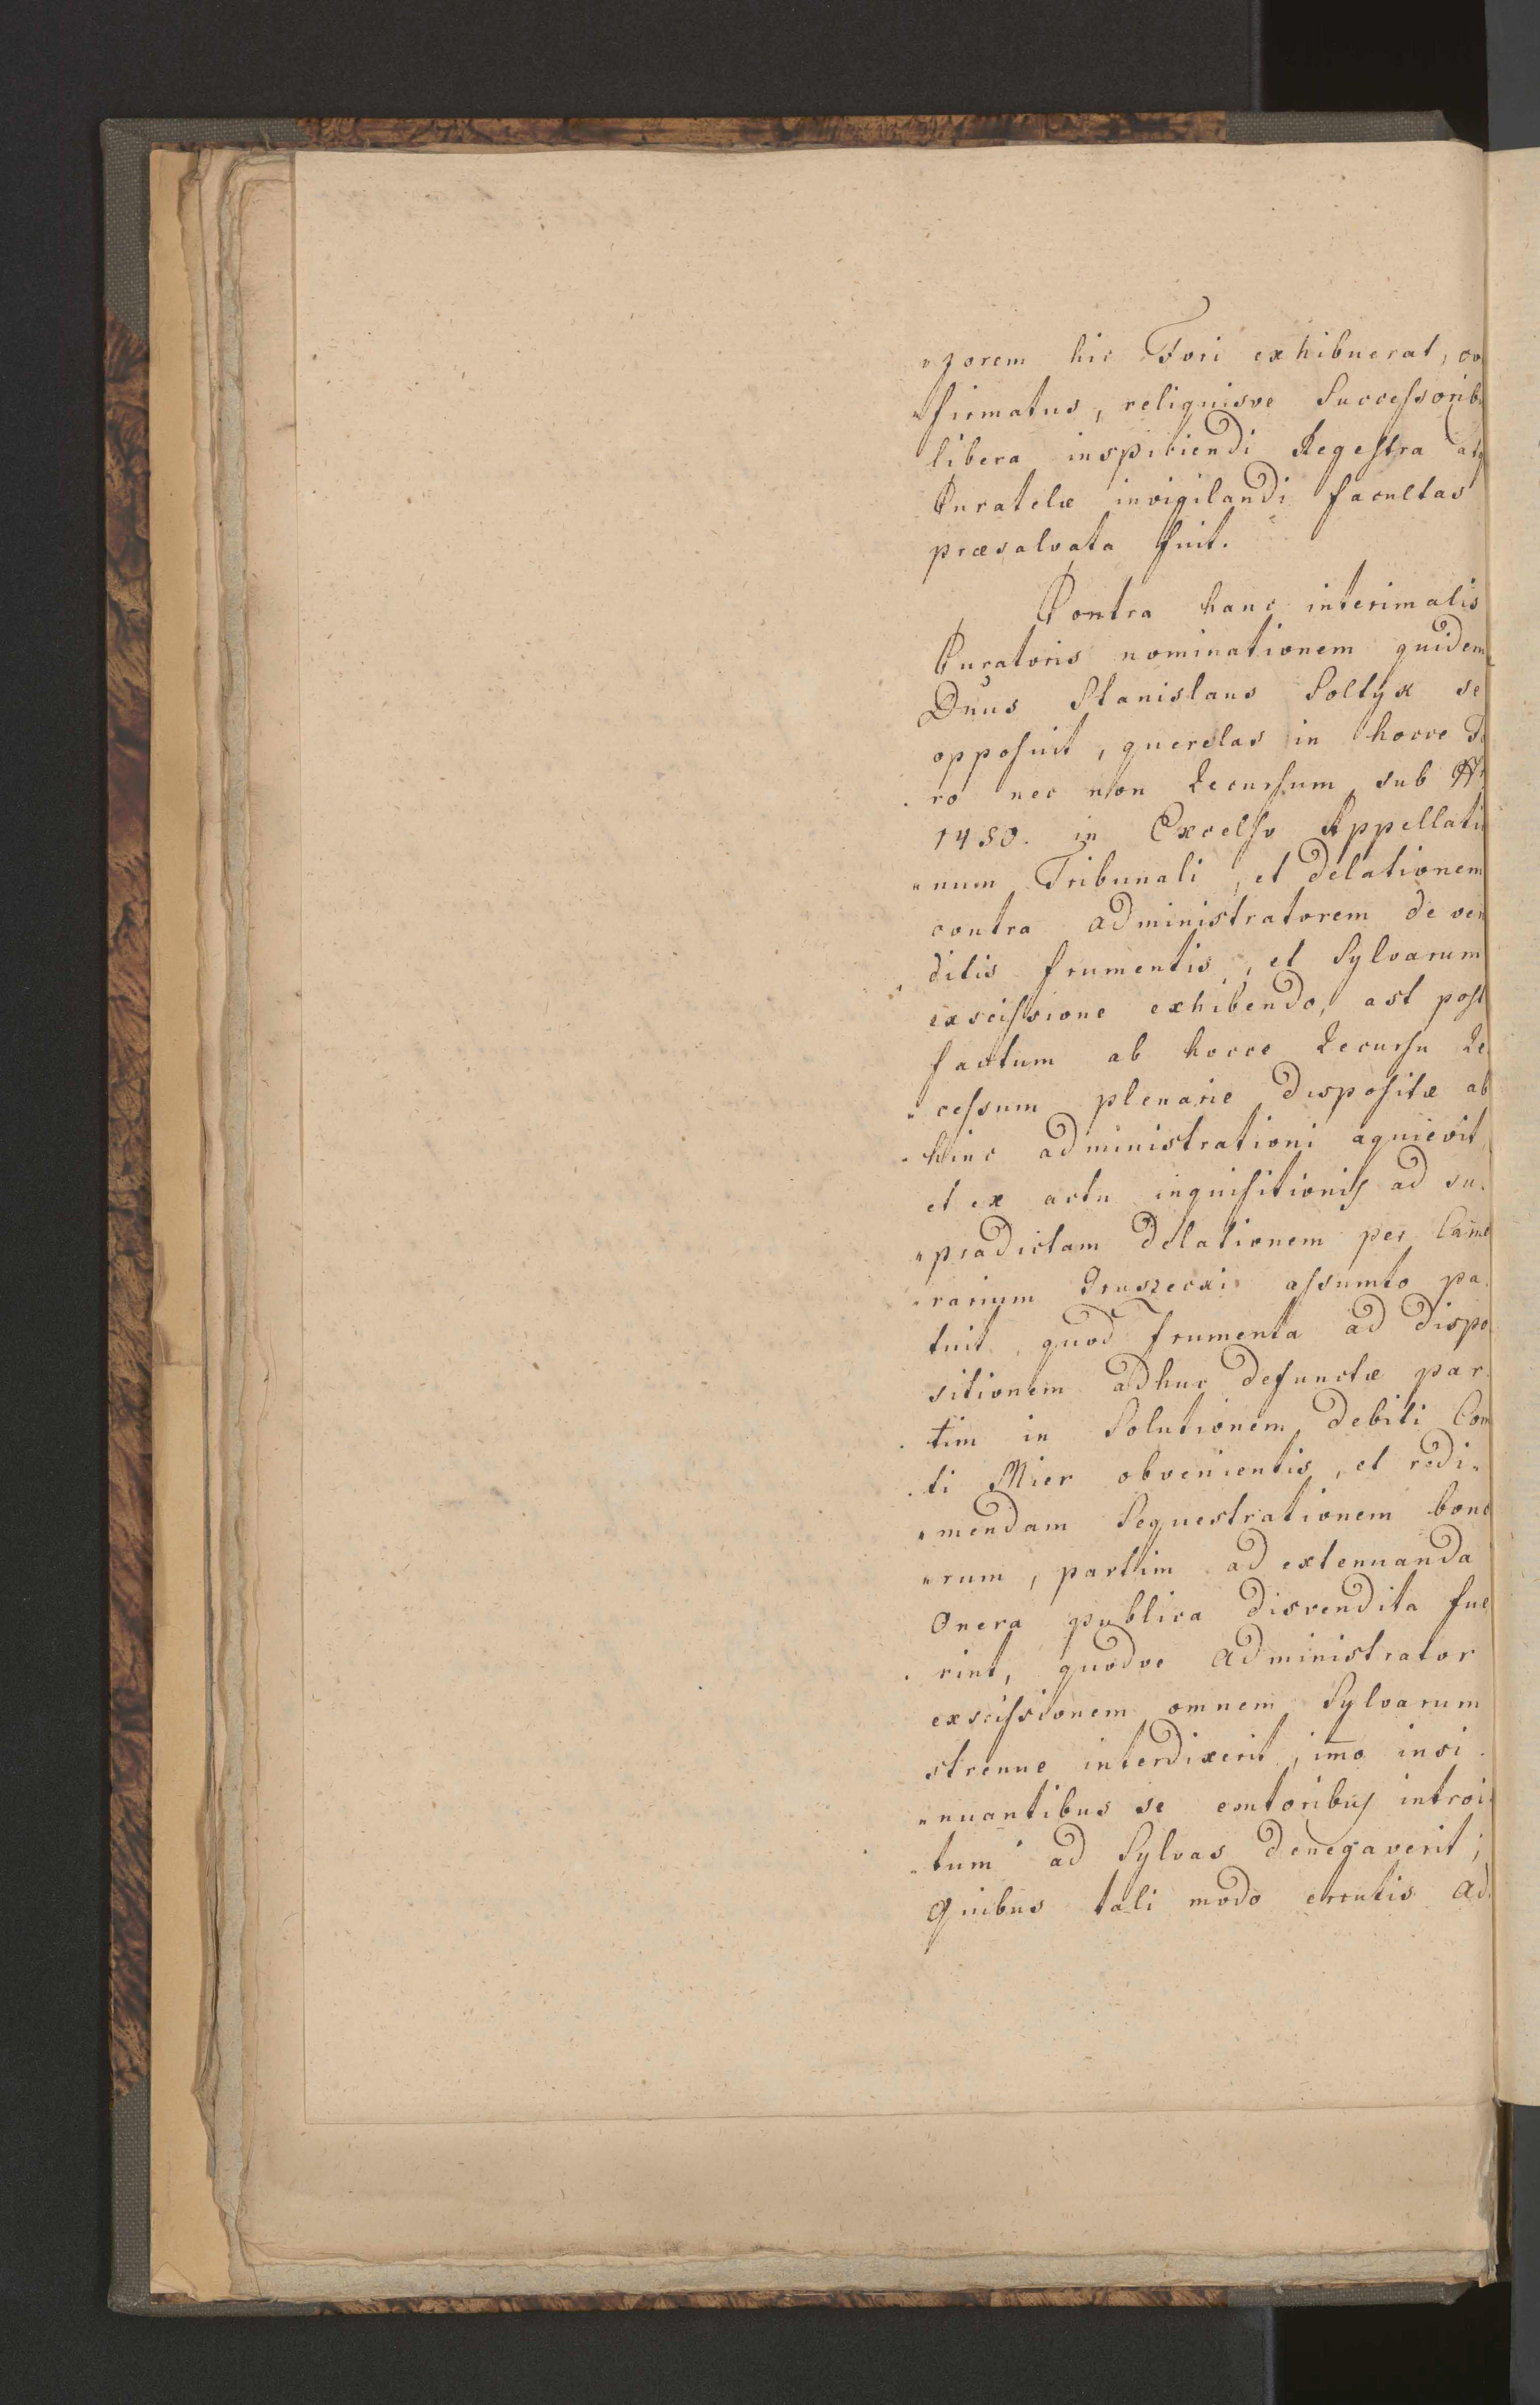 „zorem hic Fori exhibuerat, co
„firmatus, reliquisve Successorib
libera inspiciendi Regestra atq
Curatelæ invigilandi facultas
præsalvata fuit.
Contra hanc interimalis
Curatoris nominationem quidem
Dnus Stanislaus Soltyk se
opposuit, querelas in hocce Fo
ro nec non Recursum sub Nr
1480. in Excelso Appellatio
„num Tribunali, et delationem
contra administratorem de ven
ditis frumentis, et Sylvarum
exscissione exhibendo, ast post
factum ab hocce Recursu Re
„cessum plenarie dispositæ ab
hinc administrationi aquievit,
et ex actu inquisitionis ad su„
„pradictam delationem per Came
„rarium Gruszecki assumto pa„
tuit, quod frumenta ad dispo
sitionem adhuc defunctæ par„
tim in Solutionem debiti Com
ti Mier obvenientis, et redi„
„mendam Sequestrationem bono
„rum, partim ad extenuanda
Onera publica disvendita fue
rint, quodve administrator
exscissionem omnem Sylvarum
strenue interdixerit, imo insi„
„nuantibus se emtoribus introi„
„tum ad Sylvas denegaverit;
Quibus tali modo erutis ad„